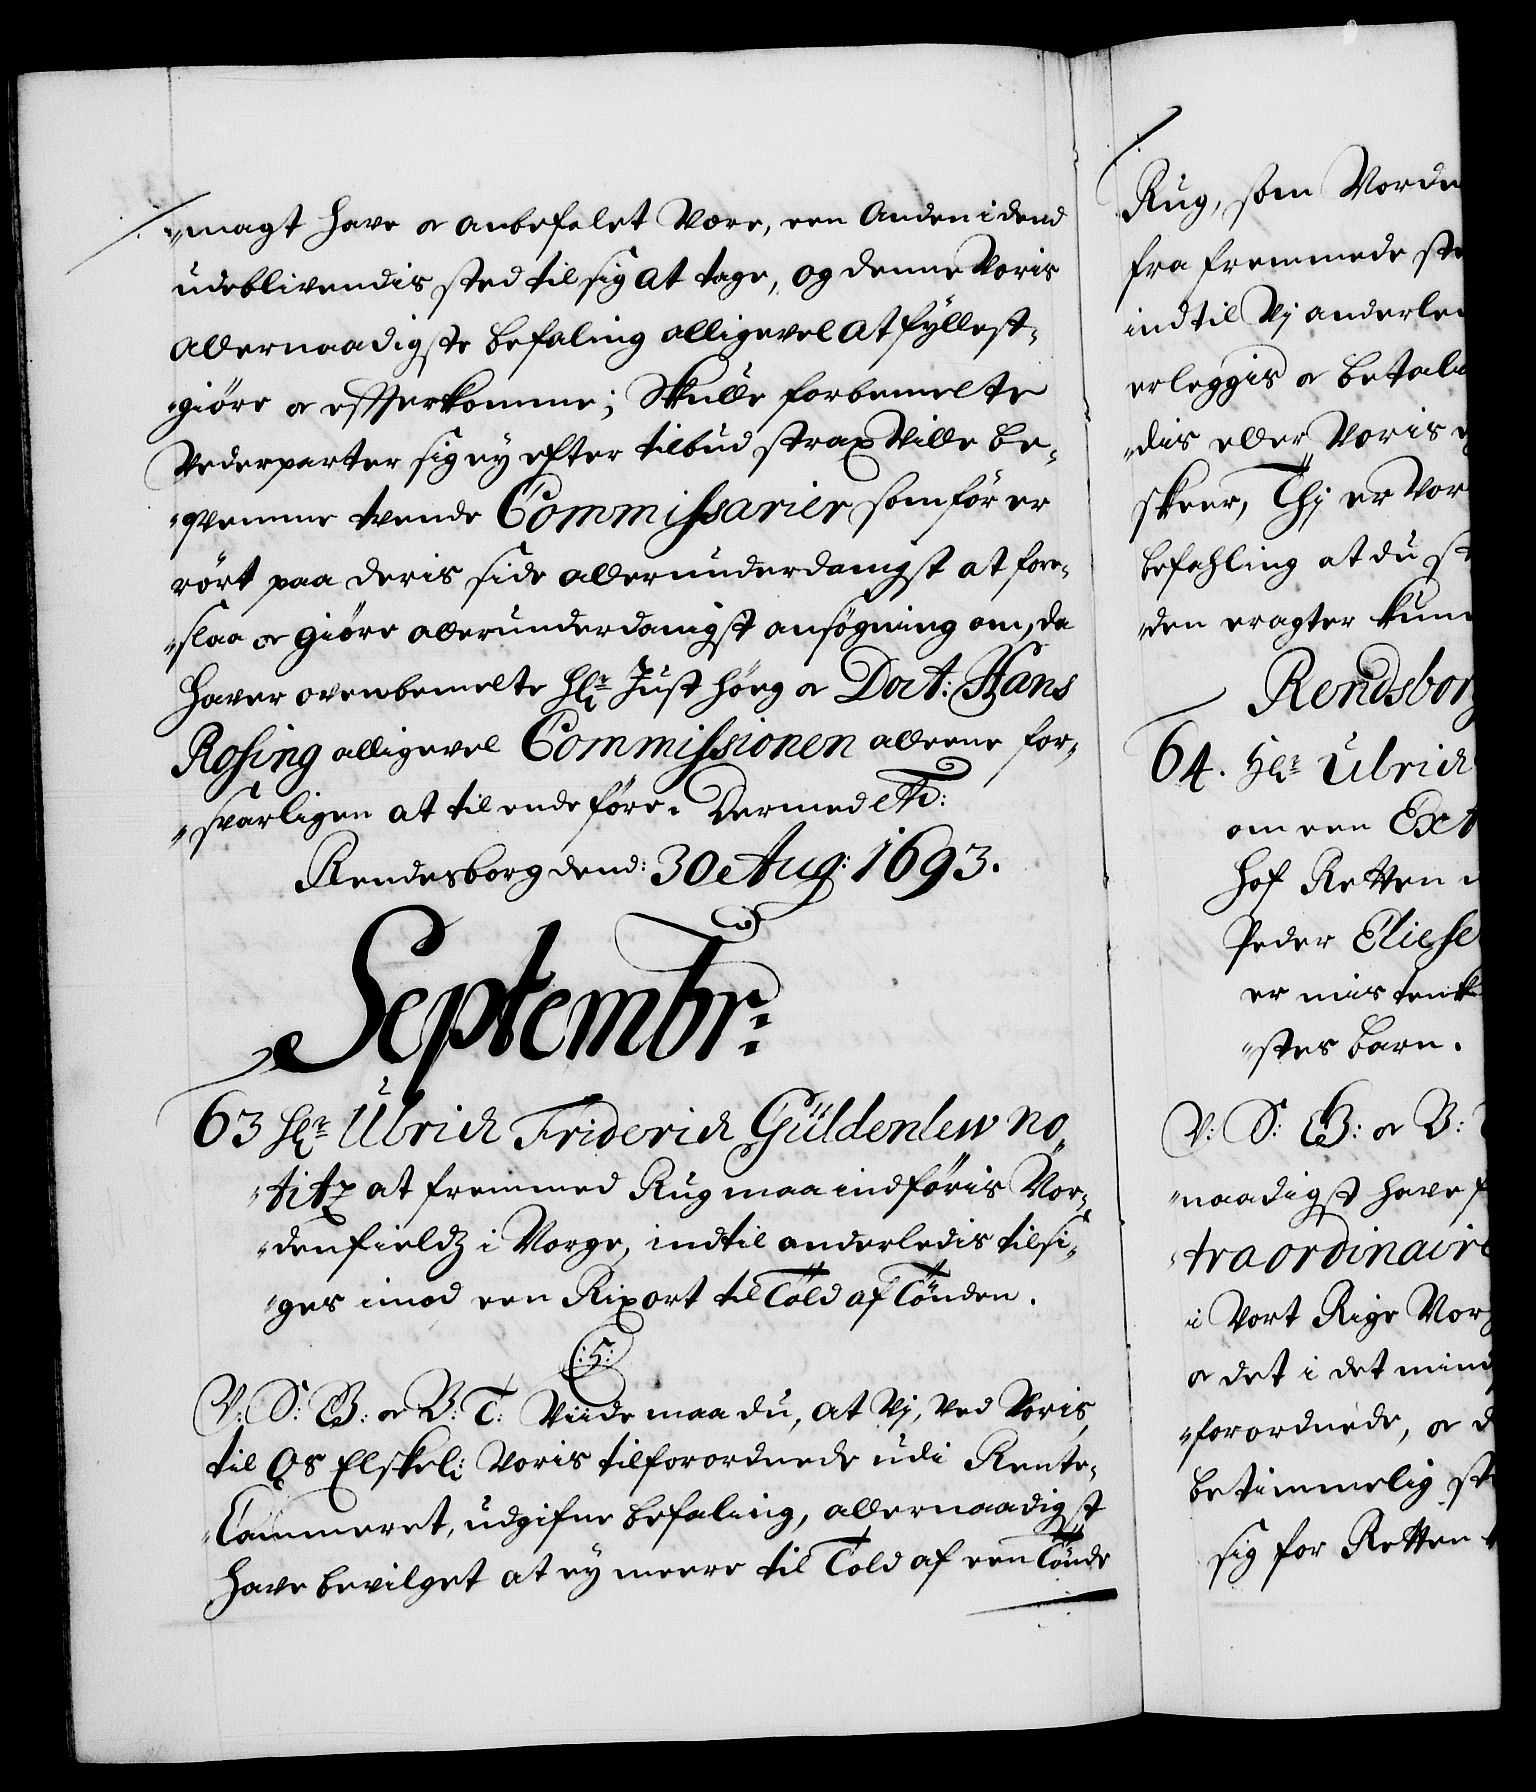 "magt have oc anbefalet være, een Anden i dend
udeblivendis sted til sig at tage, og denne Voris
allernaadigste befaling alligevel at fyllest-
"giöre oc effterkomme; Skulle forbemelte
Vederparter sig ey efter tilbud strax ville be-
"qvemme tvende Commissarier som för er
rört paa deris side allerunderdanigst at fore-
"slaa oc giöre allerunderdanigst ansögning om, da
haver ovenbemelte Hr. Just Höeg oc Doct: Hans
Rosing alligevel Commissionen alleene for-
"svarligen at til ende före. Dermed etc:
Rendesborg dend: 30 Aug: 1693.
Septembr:
63 Hr. Ulrich Friderich Güldenlew no-
"titz at fremmed Rug maa indföris Nor-
"denfieldz i Norge, indtil anderledis tilsi-
"ges imod een Rixort til Told af Tönden.
(:5:)
V: S: G: oc B: T: Viide maa du, at Vj, ved Voris,
til Os Elskel: Voris tilforordnede udi Rente-
"Cammeret, udgifne befaling, allernaadigst
have bevilget at ey meere til Told af een Tönde
Rug, som Norde
fra fremmede ste
indtil Vj anderle
erleggis oc betal
"dis eller Voris
skeer, Thj er Vor
befahling at du st
"den eragter kun
Rendsborg
64. Hr. Ulrich
om een Ext
Hof Retten
Peder Eliese
er mistenk
"stes barn.
V: S: G: oc B:
"naadigst have f
"traordinaire
i Vort Rige Norg
oc det i det mind
"forordnede, oc d
betimmelig st
sig for Retten